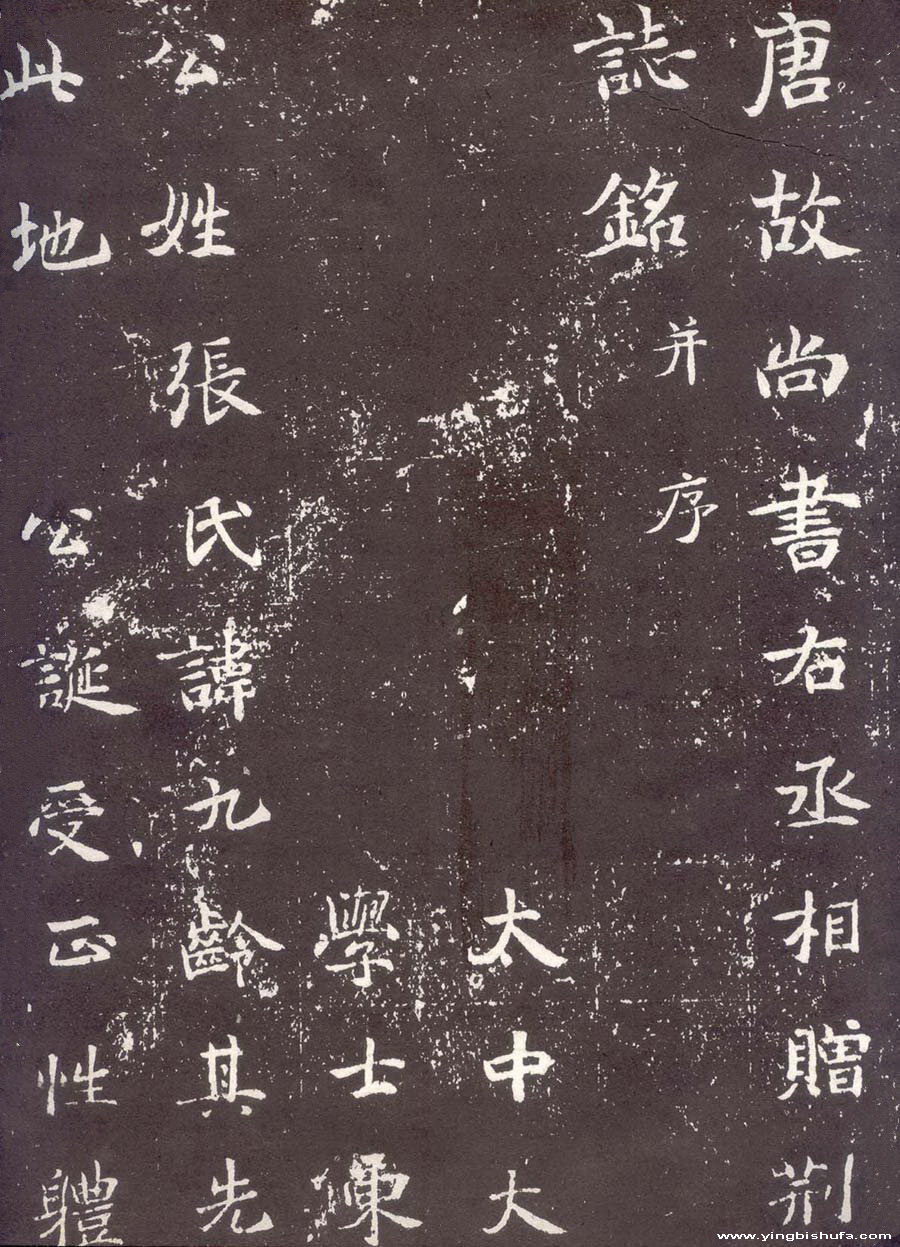 唐故尚書右丞相贈荊
誌銘并序
太中大
學士陳
公姓張氏諱九齡其先
此地公誕受正性體
www.yingbishufa.com